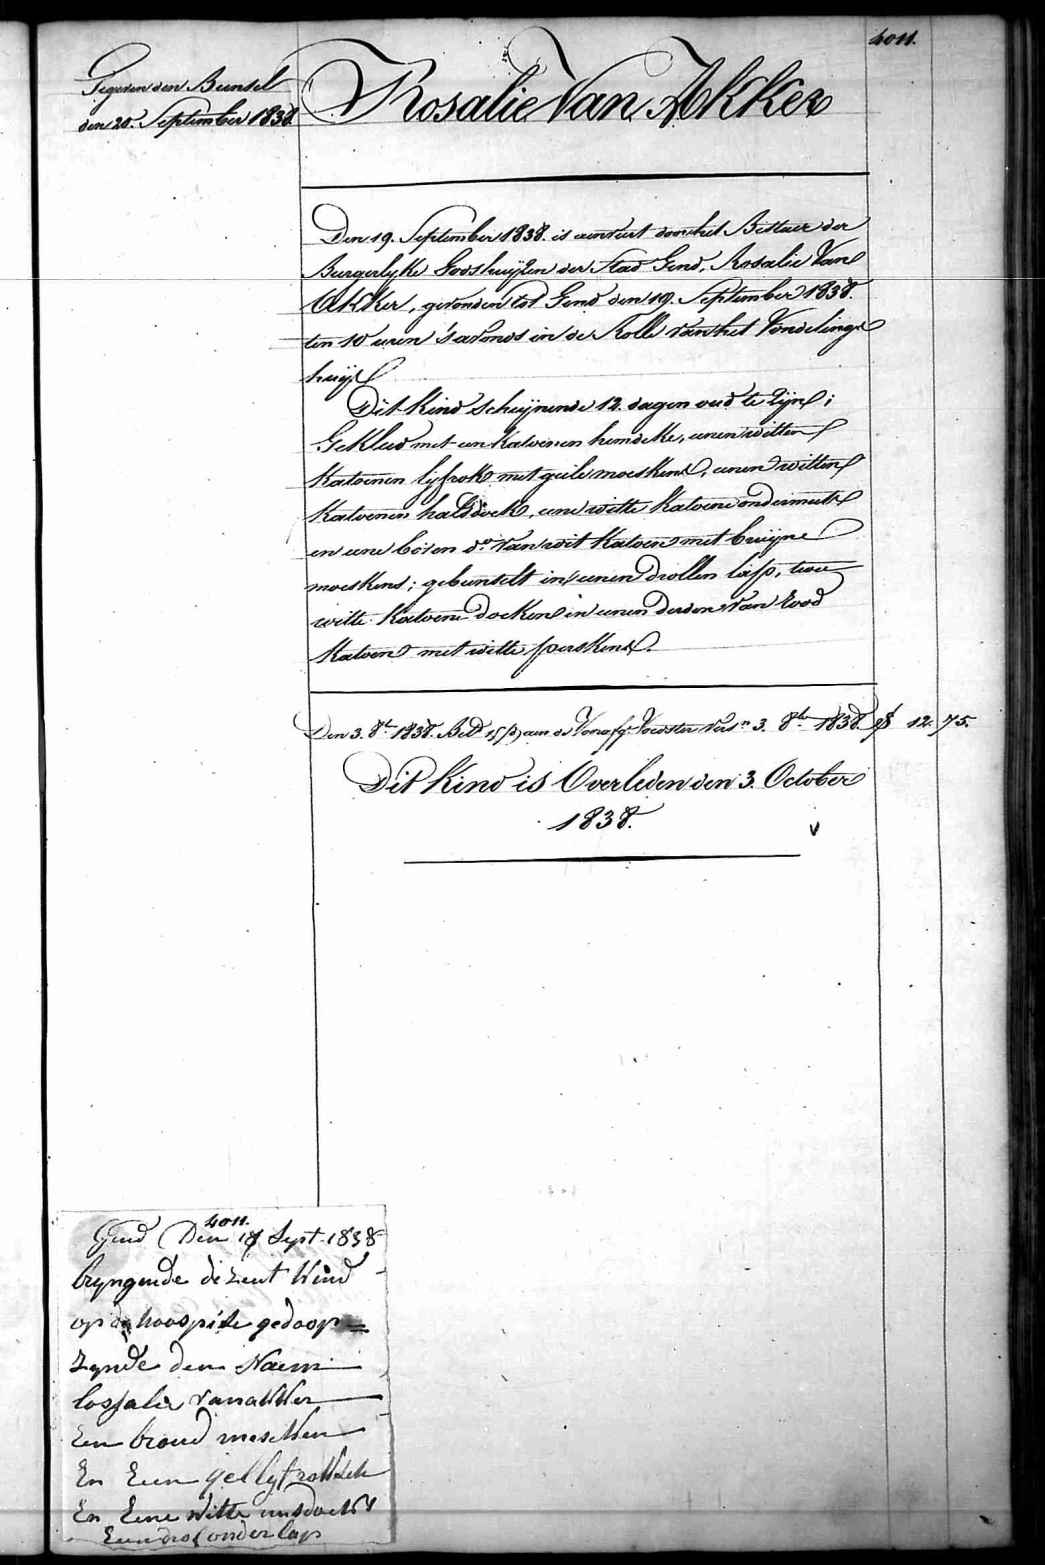 4011.
Gegeven den Bunsel
den 20. September 1838.
Rosalie Van Akker
Den 19. September 1838. is aenveert door het Bestuer der
Burgerlyke Godshuijzen der Stad Gend, Rosalie Van
Akker, gevonden tot Gend den 19. September 1838.
ten 10 uren 's avonds in de Rolle van het Vondelings
huijs
Dit Kind schijnende 12. dagen oud te Zijn;
Gekleed met een Katoenen hemdeke, eenen witten
Katoenen lyfrok met geile moeskens, eenen witten
Katoenen halsdoek, eene witte Katoene ondermuts
en eene boven do. van wit Katoen met bruijne
moeskens; gebunselt in eenen drollen lap, twee
witte Katoene doeken en eenen derden van Rood
Katoen met witte perskens.
Den 3. 8b. 1838. Bet. aen de Voedster 3. 8b. 1838. 12. 75.
Dit Kind is Overleden den 3. October
1838.
v
4011.
Gend Den 19 Sept. 1838
bryngende dezent Kind
op de hoospise gedoop =
Zynde den Naem
Rossalie van akker
Een broud mesken
En Een gel lyfrokken
En Eene Witte
Een drol onder lap